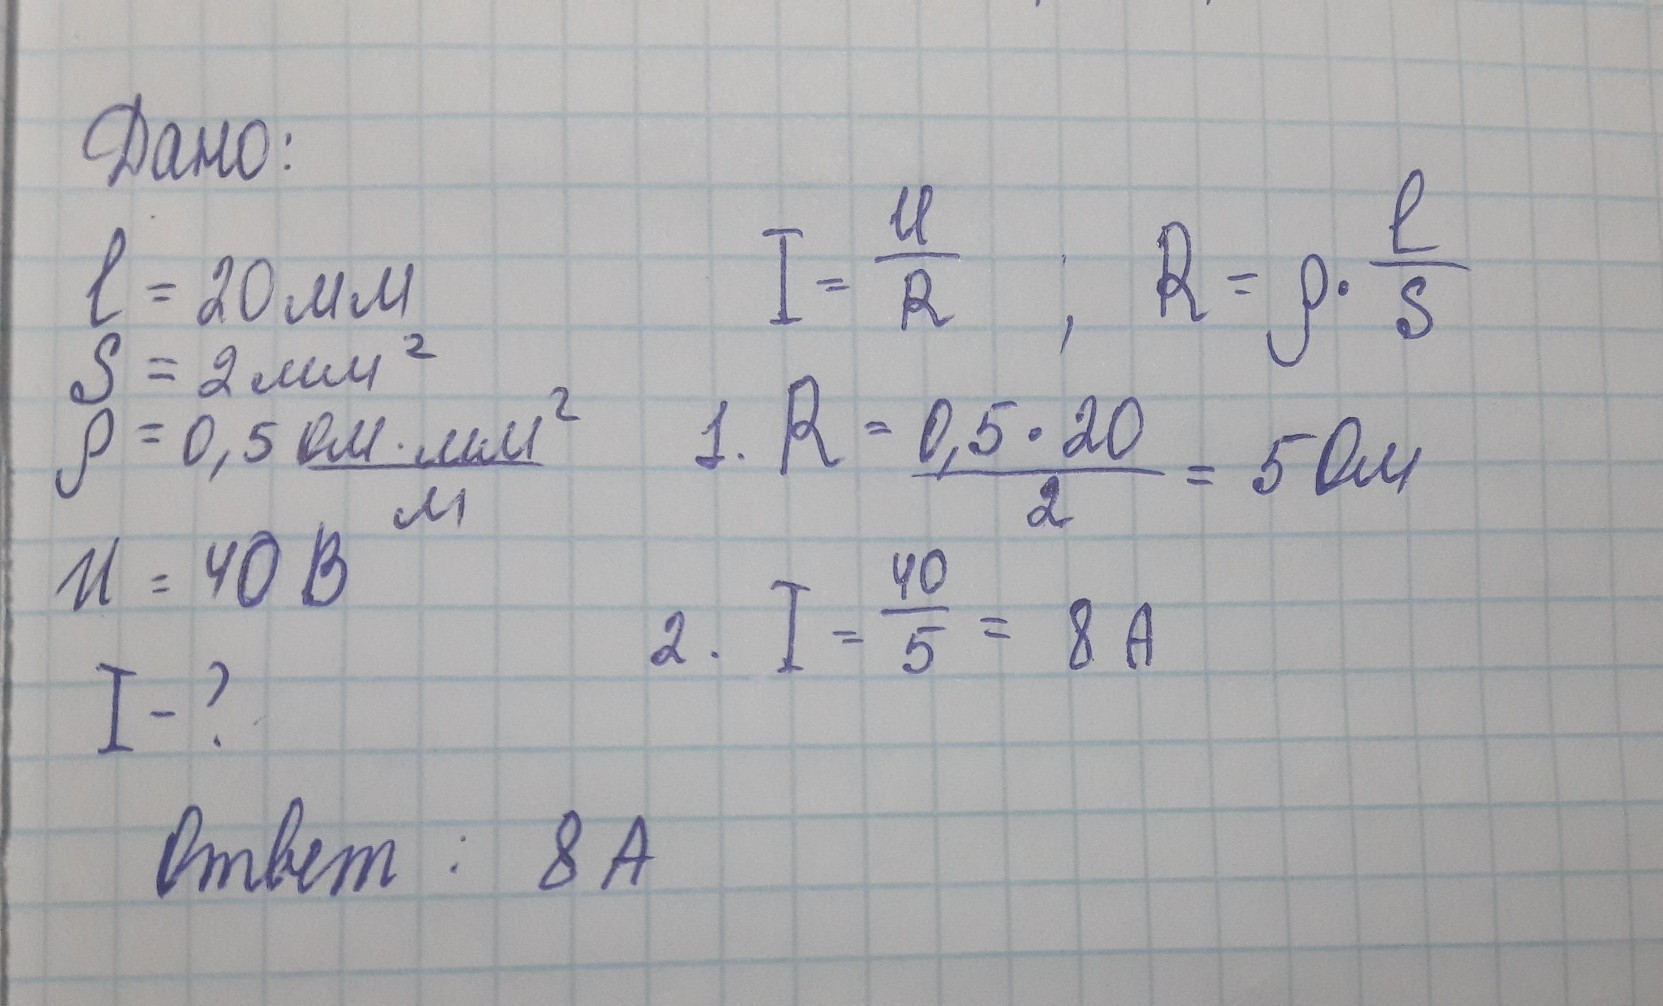 Дано:
l = 20 мм
S = 2 мм²
ρ = 0,5 Ом·мм²/м
U = 40 В
I - ?
I = U/R ; R = ρ · l/S
1. R = 0,5 · 20/2 = 5 Ом
2. I = 40/5 = 8 А
Ответ : 8 А